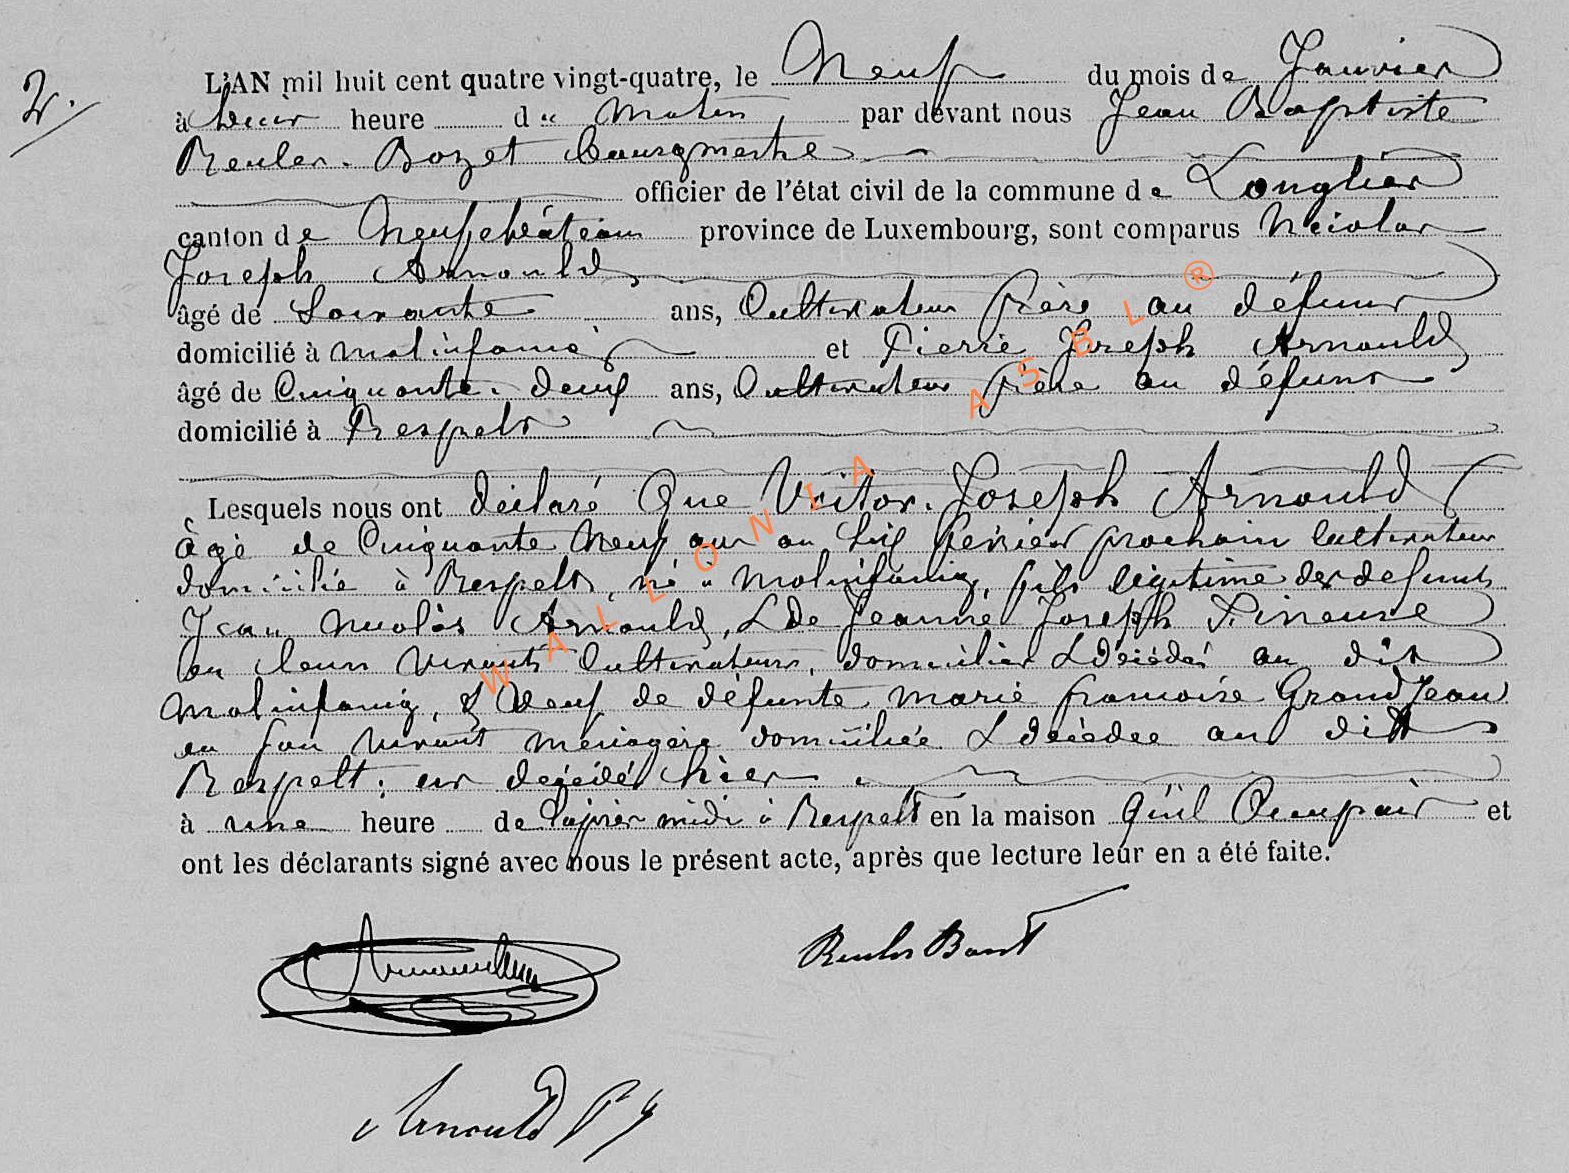 2.
L'AN mil huit cent quatre vingt-quatre, le Neuf du mois de Janvier
à huit heure du Matin, par devant nous Jean Baptiste
Reuler-Bozet bourgmestre
officier de l'état civil de la commune de Longlier
canton de Neufchâteau province de Luxembourg, sont comparus Nicolas
Joseph Arnould
âgé de Soixante ans, Cultivateur frère au défunt
domicilié à molinfaing et Pierre Joseph Arnould
âgé de Cinquante-deux ans, Cultivateur frère au défunt
domicilié à Respelt
Lesquels nous ont déclaré Que Victor-Joseph Arnould
âgé de Cinquante Neuf ans au Six février prochain Cultivateur
domicilié à Respelt, né à Molinfaing, fils légitime des défunts
Jean Nicolas Arnould, & de Jeanne Joseph Pineuse
en leur vivants Cultivateurs, domiciliés & décédés au dit
Molinfaing, & veuf de défunte marie francoise GrandJean
en son vivant ménagère domiciliée & décédée au dit
Respelt; est décédé hier
à une heure de l'après midi à Respelt en la maison qu'il Occupait et
ont les déclarants signé avec nous le présent acte, après que lecture leur en a été faite.
Reuler Bozet
Arnould P J
WALLONIA ASBL ®